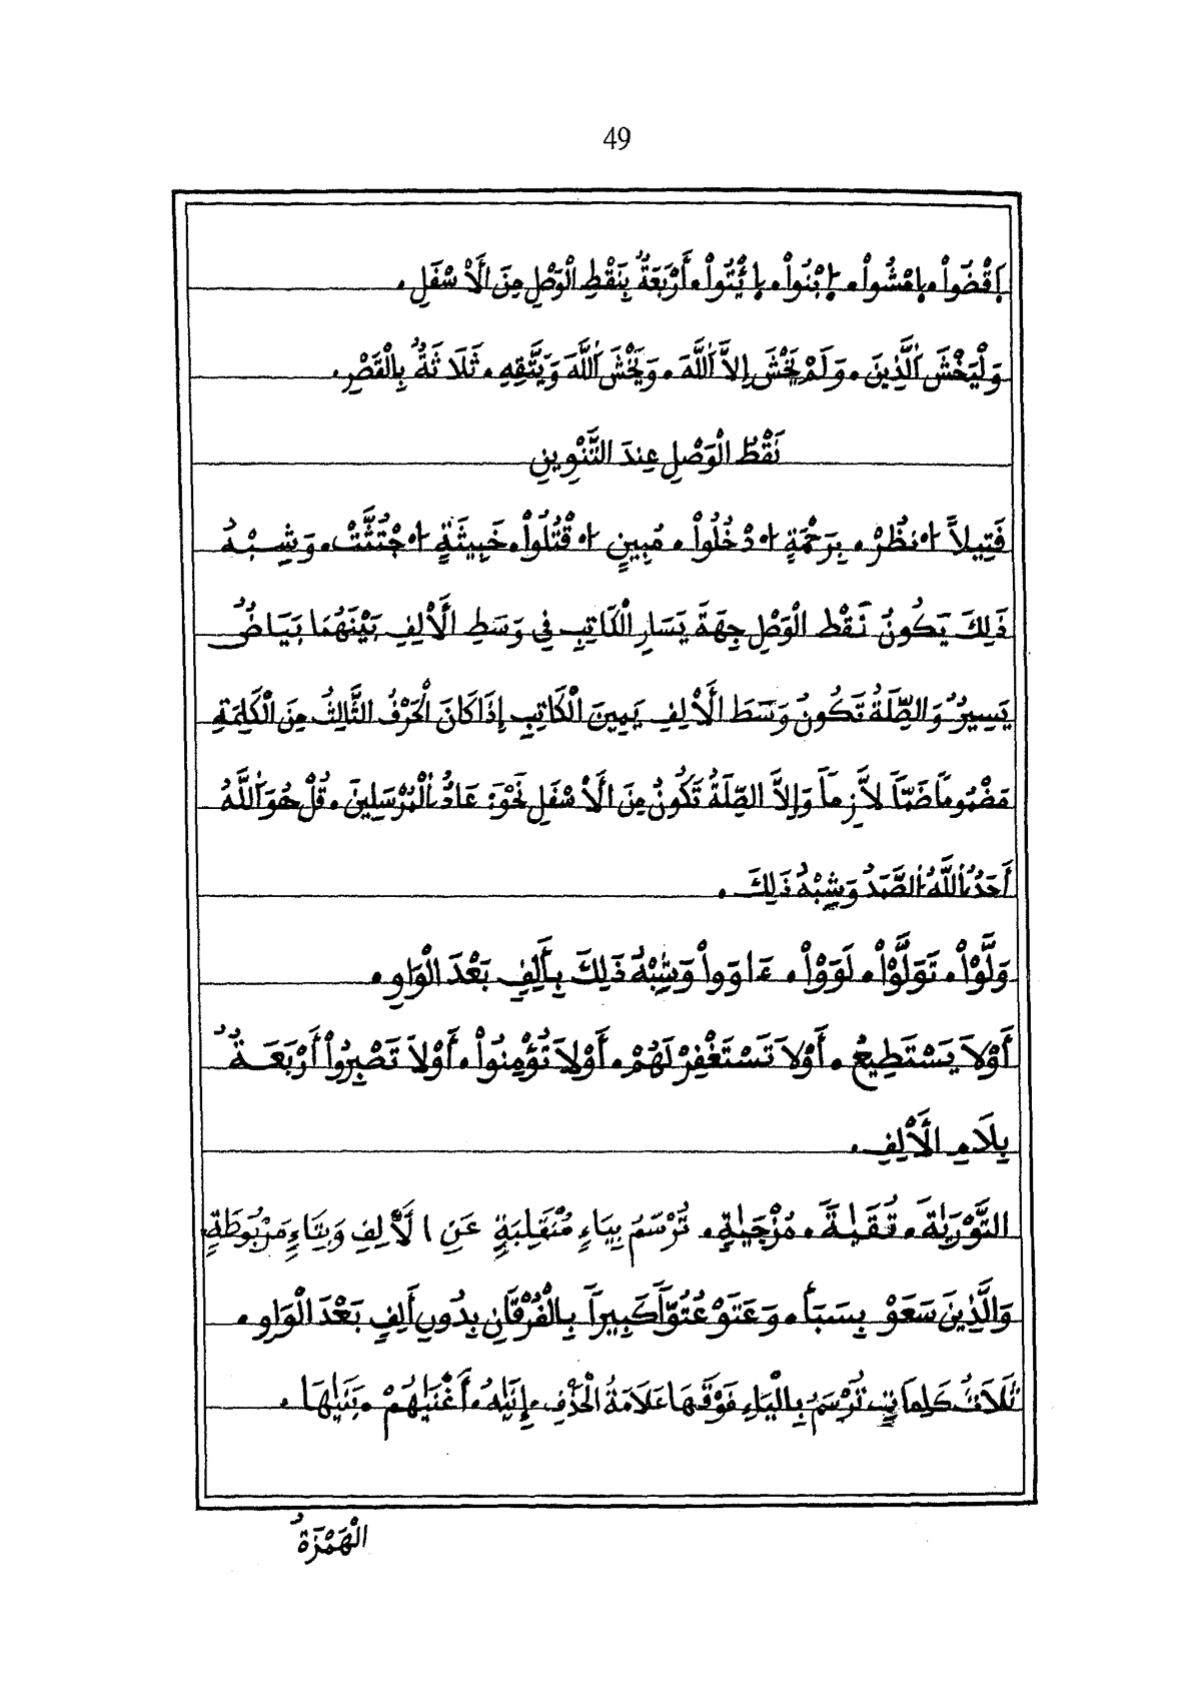 49
اِقْضُواْ. اِمْشُواْ. اِبْنُواْ. اِئْتُواْ. أَرْبَعَةٌ بِنَقْطِ الْوَصْلِ مِنَ الَأسْفَلِ.
وَلْيَخْشَ اَلَّذِينَ. وَلَمْ يَخْشَ إِلاَّ اَللَّهَ. وَيَخْشَ اَللَّهَ وَيَتَّقِهِ. ثَلَاثَةٌ بِالْقَصْرِ.
نَقْطُ الْوَصْلِ عِندَ التَّنْوِينِ
فَتِيلاً اُنظُرْ. بِرَحْمَةٍ اُدْخُلُواْ. مُبِينٍ اُقْتُلُواْ. خَبِيثَةٍ اُجْتُثَّتْ. وَشِبْهُ
ذَلِكَ يَكُونُ نَقْطُ الْوَصْلِ جِهَةَ يَسَارِ الْكَاتِبِ فِي وَسَطِ الَأْلِفِ بَيْنَهُمَا بَيَاضٌ
يَسِيرٌ وَالصِّلَةُ تَكُونُ وَسَطَ الَأْلِفِ يَمِينَ الْكَاتِبِ إِذَا كَانَ الْحَرْفُ الثَّالِثُ مِنَ الْكَلِمَةِ
مَضْمُوماً ضَمّاً لاَّزِماً وَإِلاَّ الصِّلَةُ تَكُونُ مِنَ الَأسْفَلِ نَحْوَ: عَادٌ اُلْمُرْسَلِينَ. قُلْ هُوَ اَللَّهُ
أَحَدٌ اُللَّهُ اُلصَّمَدُ وَشِبْهُ ذَلِكَ.
وَلَّوْاْ. تَوَلَّوْاْ. لَوَوْاْ. ءَاوَواْ وَشِبْهُ ذَلِكَ بِأَلِفٍ بَعْدَ الْوَاوِ.
أَوْلاَ يَسْتَطِيعُ. أَوْلاَ تَسْتَغْفِرْ لَهُمْ. أَوْلاَ تُؤْمِنُواْ. أَوْلاَ تَصْبِرُواْ أَرْبَعَةٌ
بِلَامِ الَأْلِفِ.
التَّوْرَيٰةَ. تُقَيٰةً. مُزْجَيٰةٍ. تُرْسَمُ بِيَاءٍ مُنْقَلِبَةٍ عَنِ الَأْلِفِ وَبِتَاءٍ مَرْبُوطَةٍ
وَالَّذِينَ سَعَوْ بِسَبَأ. وَعَتَوْ عُتُوّاً كَبِيراً بِالْفُرْقَانِ بِدُونِ أَلِفٍ بَعْدَ الْوَاوِ.
ثَلَاثُ كَلِمَاتٍ تُرْسَمُ بِالْيَاءِ فَوْقَهَا عَلَامَةُ الْحَذْفِ. إِنَيٰهُ. أَغْنَيٰهُمْ. بَنَيٰهَا.
الْهَمْزَةُ